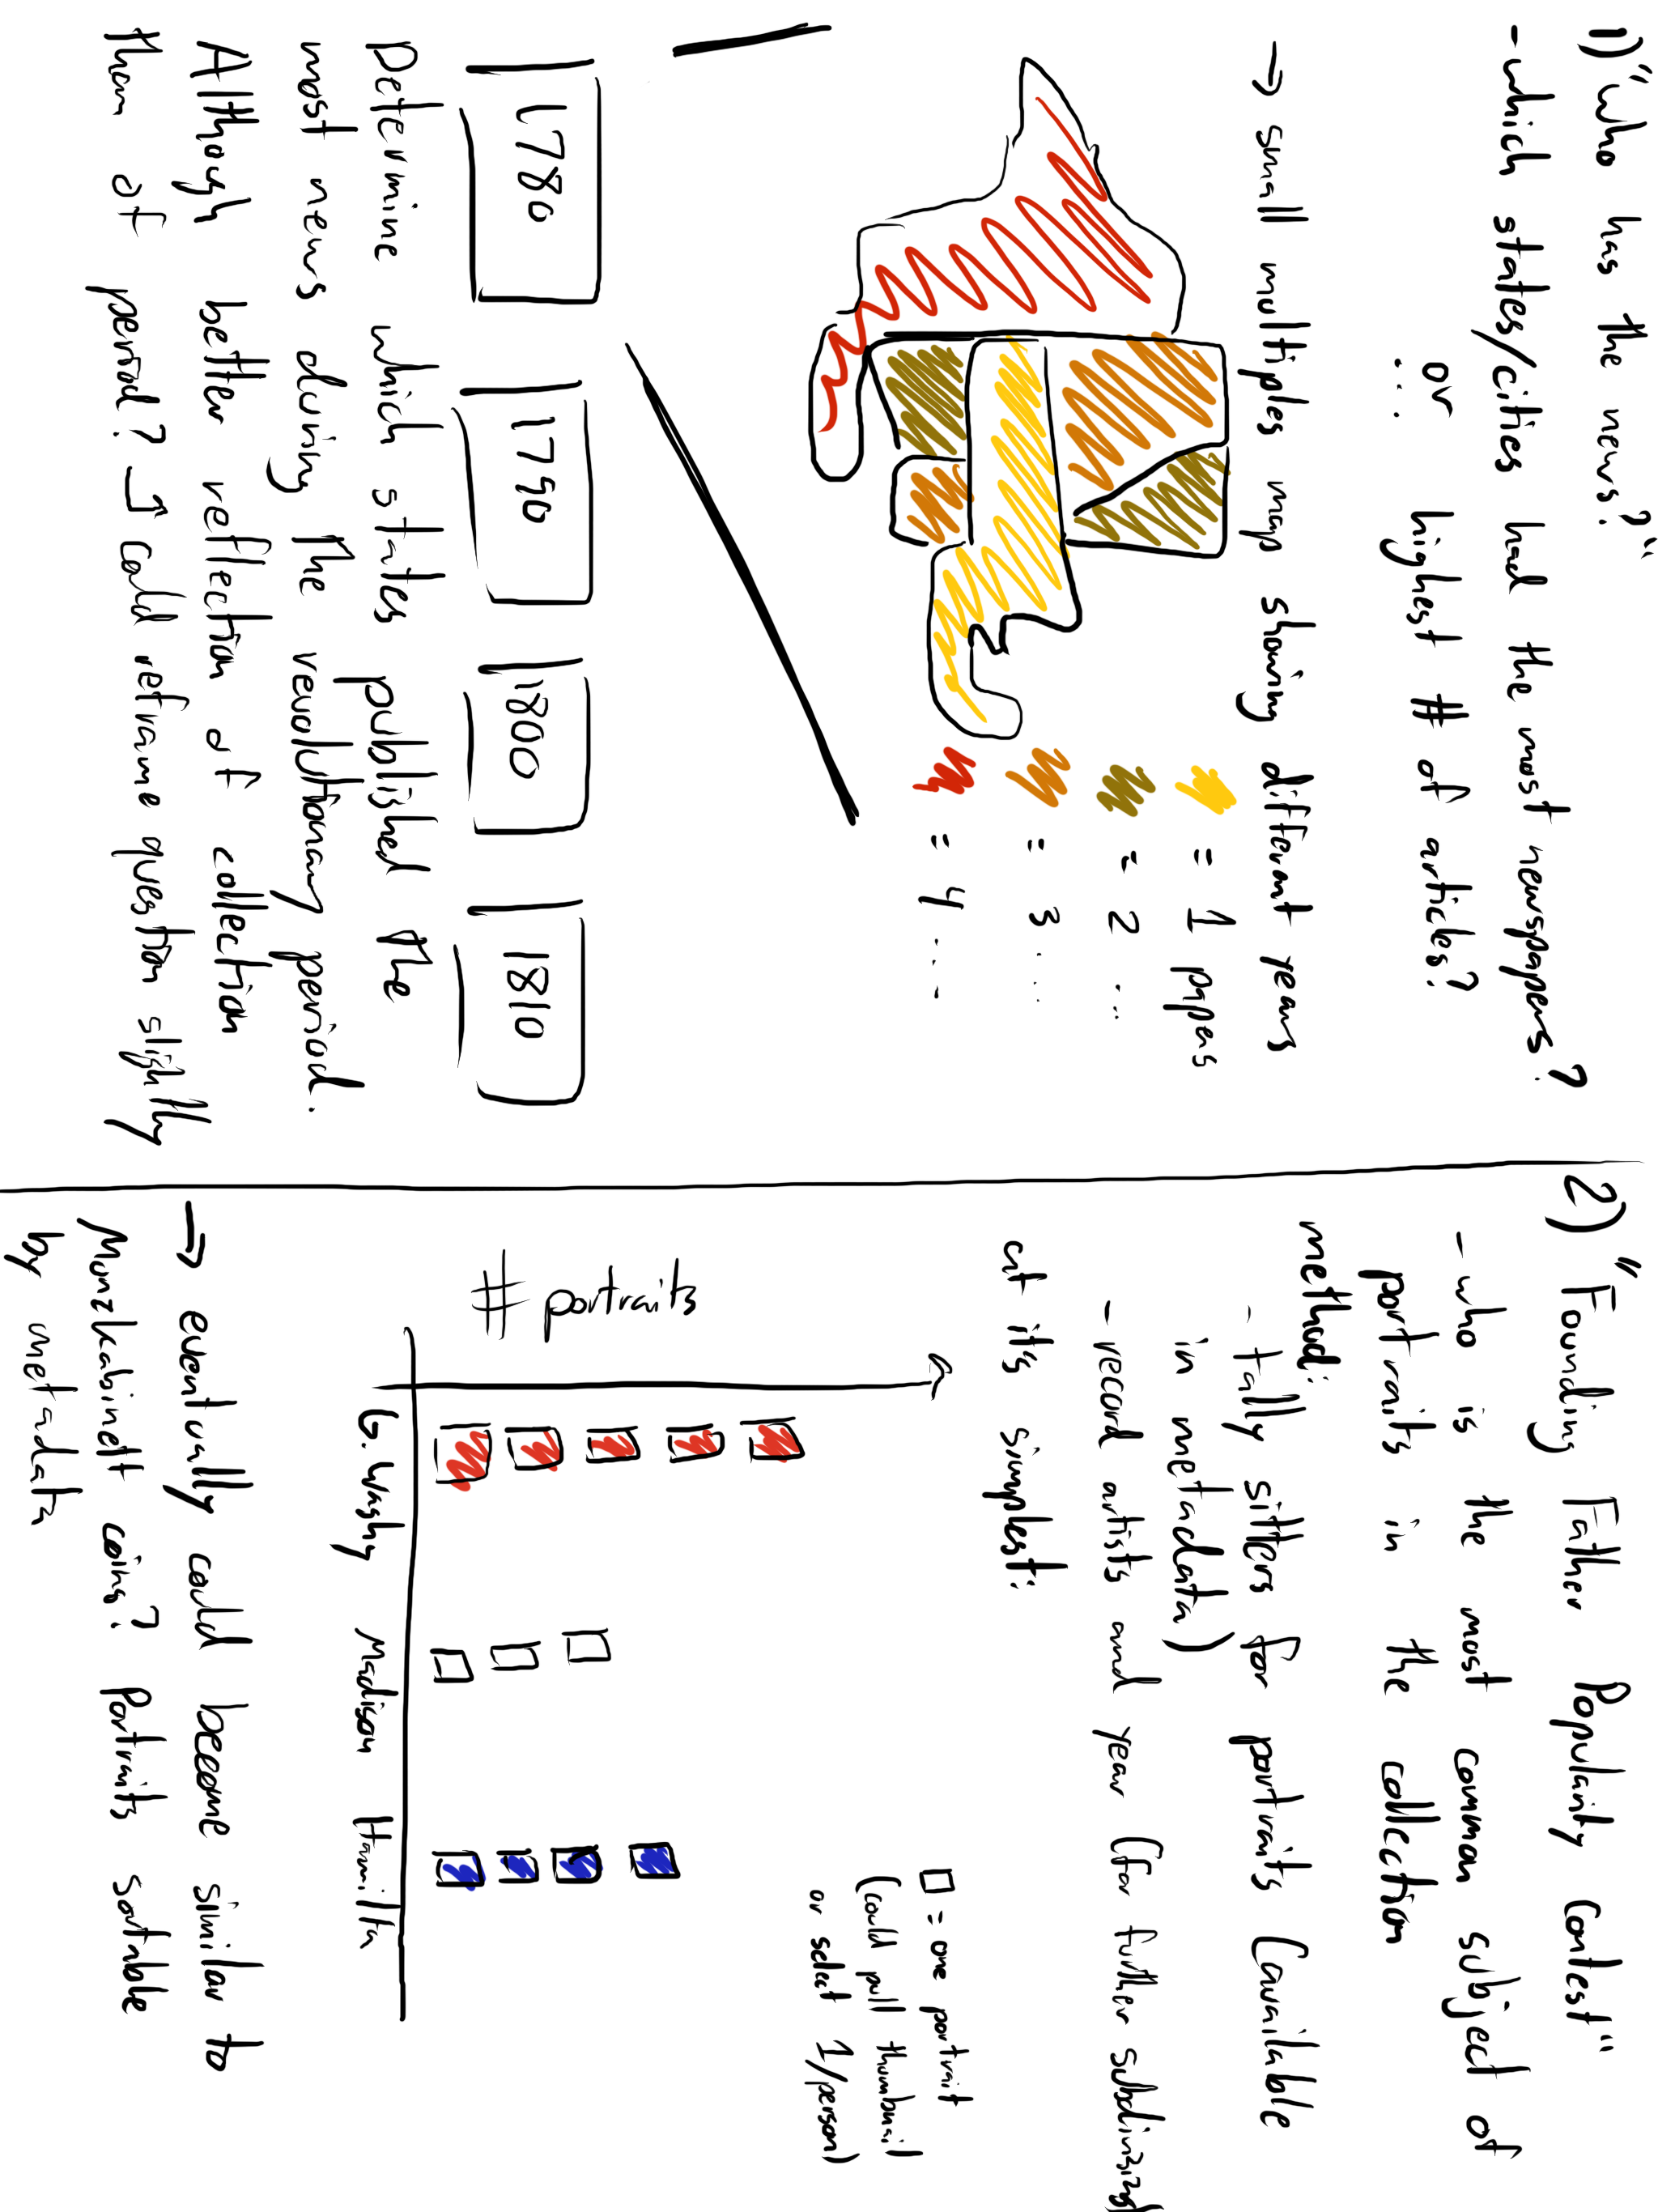 1) "Who has the news?"
- which states/cities had the most newspapers?
... or highest # of articles?
→ small multiples map showing different years
= 1 papers
= 2 ...
= 3 ...
= 4 ...
1780
1790
1800
1810
Determine which states published the
most news during the revolutionary period.
Although better reflection of collection
than of period? → could reframe question slightly
2) "Founding Father Popularity Contest"
- who is the most common subject of
portraits in the collection
method:
- tally sitters for portraits (available
in metadata)
- record artists and year (for further subdivizing
at it's simplest:
□ = one portrait
(could pull thumbnail
or select 1/person)
# portraits
G. Washy
Madison
Hamilton
→ eventually could become similar to
Munzkabinett coins? Portraits sortable
by metadata